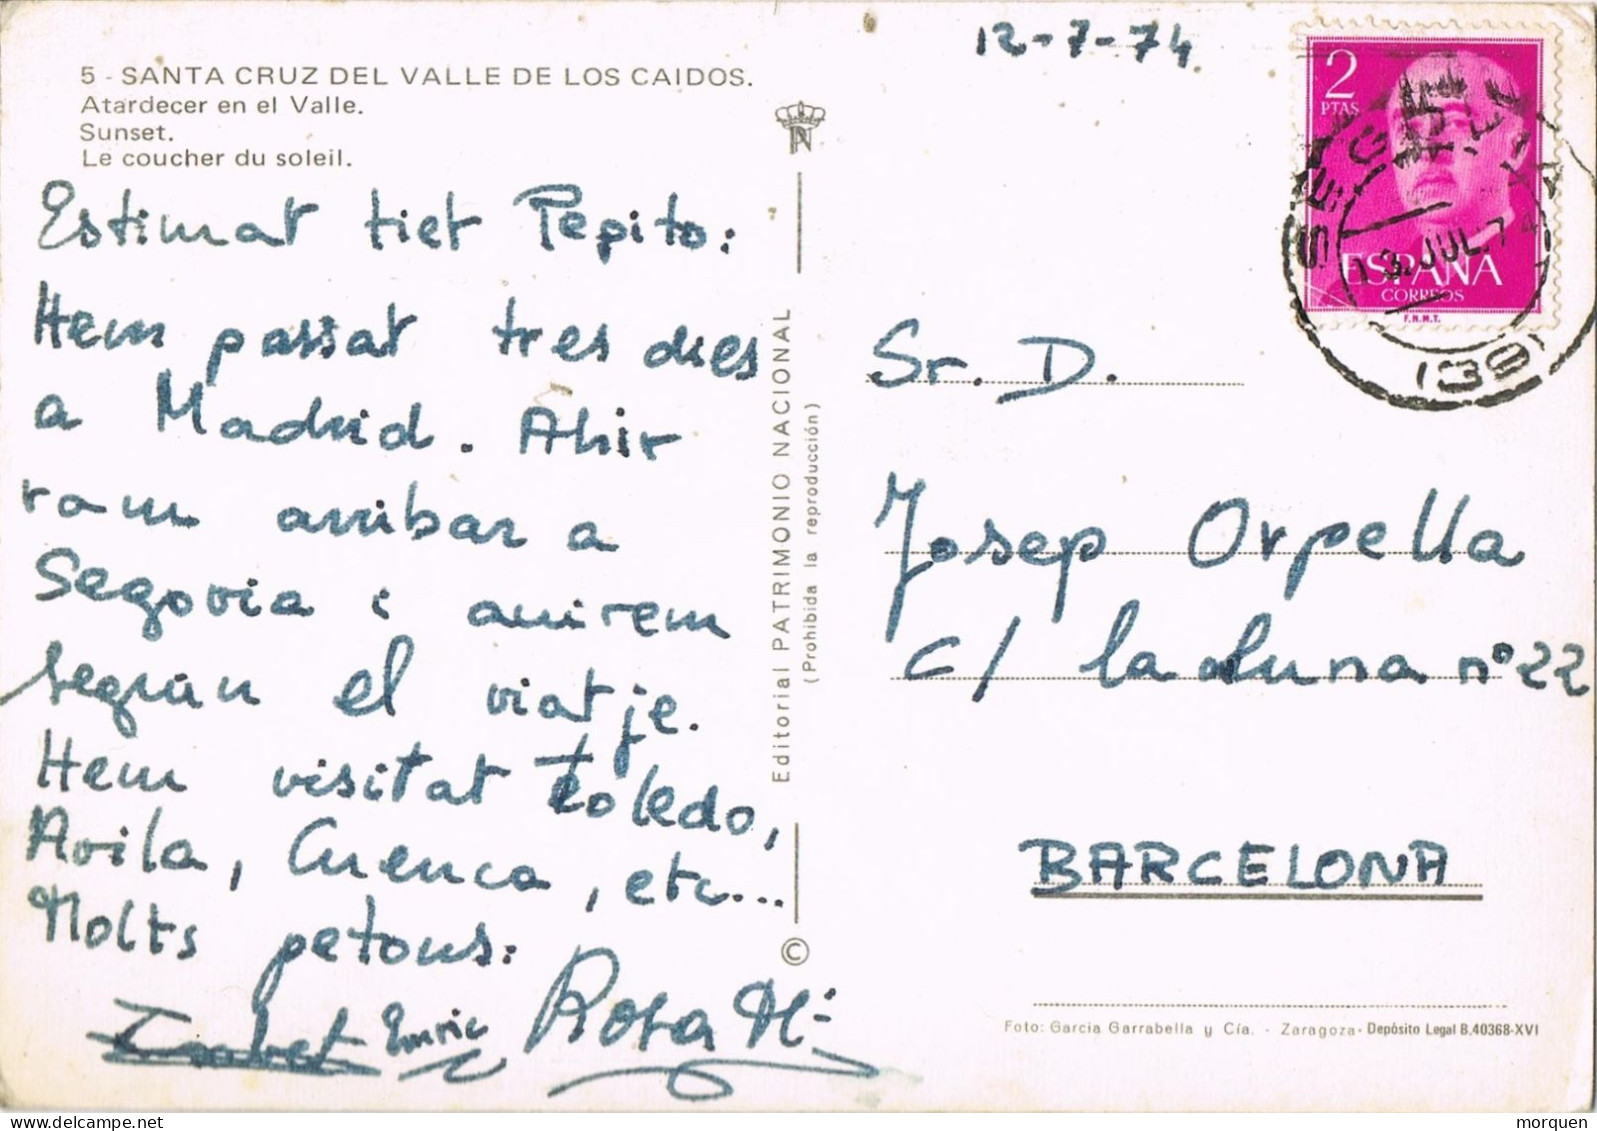 12-7-74
5 - SANTA CRUZ DEL VALLE DE LOS CAIDOS.
Atardecer en el Valle.
Sunset.
Le coucher du soleil.
Estimat tiet Pepito:
Hem passat tres dies
a Madrid. Ahir
vam arribar a
Segovia i anirem
seguin el viatje.
Hem visitat Toledo,
Avila, Cuenca, etc...
Molts petons:
Enric Rosa Mª
Editorial PATRIMONIO NACIONAL
(Prohibida la reproducción)
©
2
PTAS
ESPAÑA
CORREOS
F.N.M.T.
13 JUL. 7
(39)
Sr. D.
Josep Orpella
c/ la Luna nº 22
BARCELONA
Foto: Garcia Garrabella y Cía. - Zaragoza - Depósito Legal B.40368-XVI
morquen